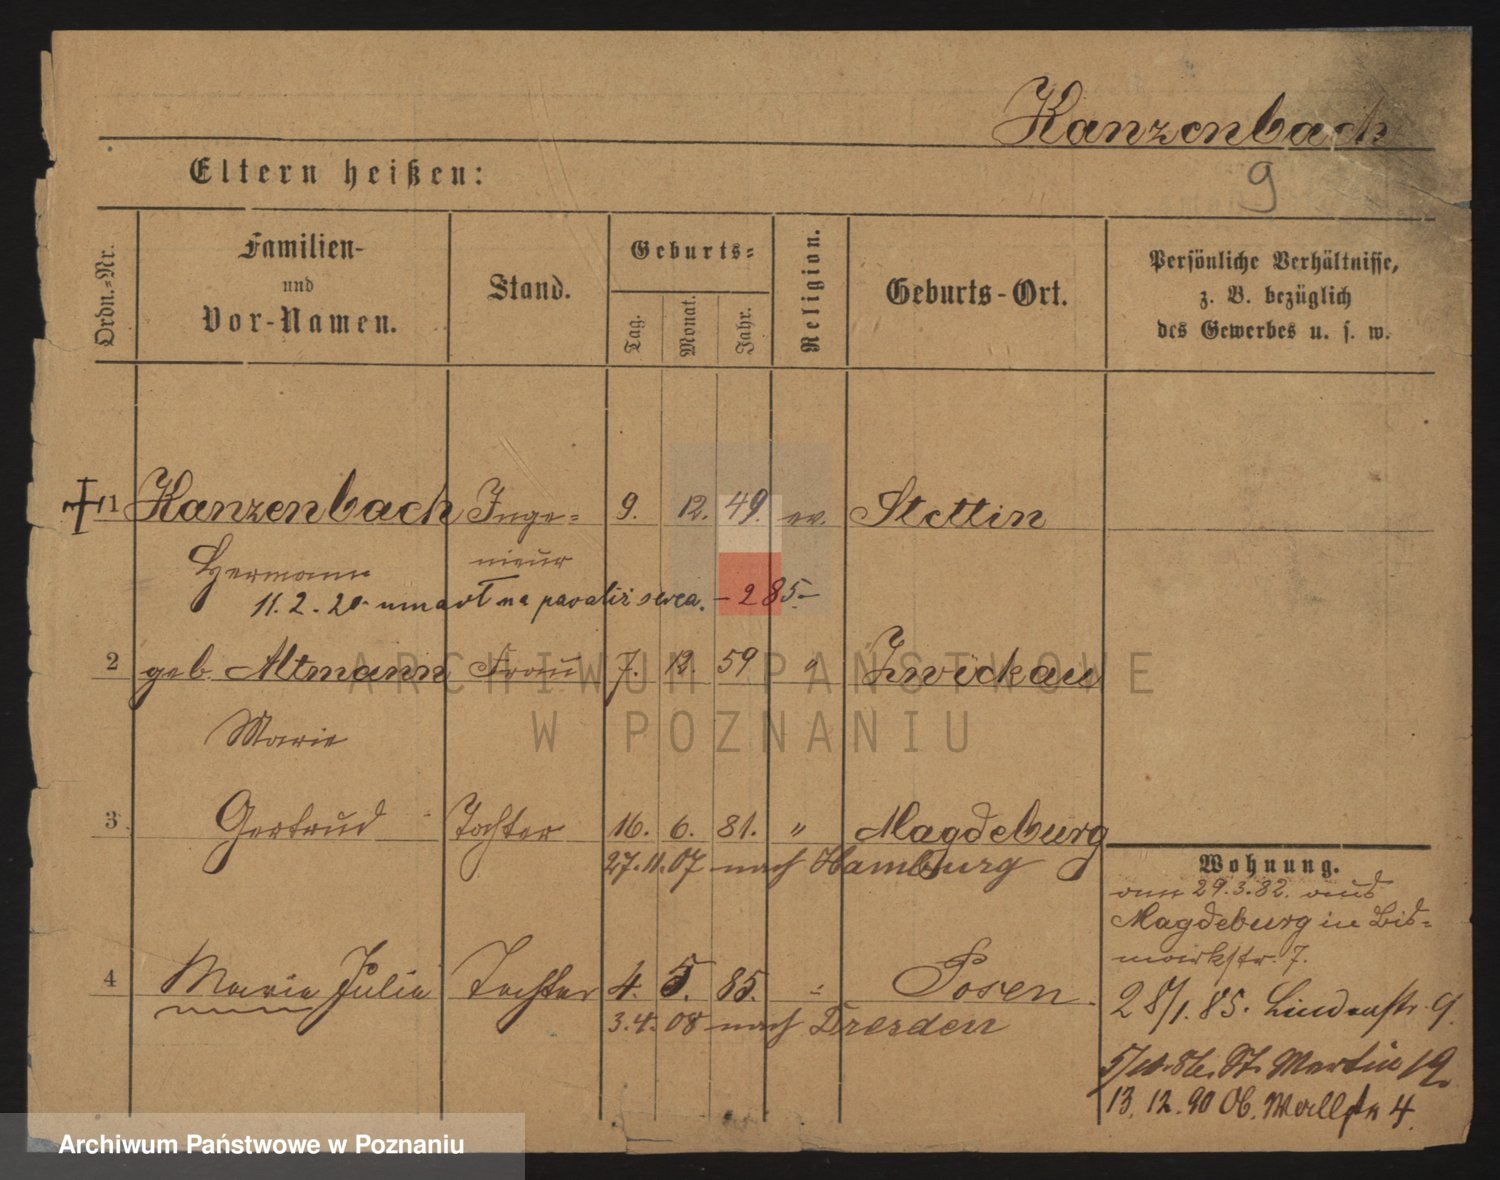 Kanzenbach
9
Eltern heißen:
Ordn.-Nr.
Familien- und Vor-Namen.
Stand.
Geburts=
Tag.
Monat.
Jahr.
Religion.
Geburts-Ort.
Persönliche Verhältnisse,
z. B. bezüglich
des Gewerbes u. s. w.
1 Kanzenbach Inge= 9. 12. 49. ev. Stettin
Hermann nieur
11.2.20 umarł na paraliż serca. – 285.–
2 geb. Altmann Frau 7. 12. 59 " Zwickau
Marie
3 Gertrud Tochter 16. 6. 81. " Magdeburg
27.11.07 nach Hamburg
4 Marie Julie Tochter 4. 5. 85. " Posen
3.4.08 nach Dresden
Wohnung.
29.3.82. aus
Magdeburg in Bis=
markstr. 7.
28/1.85. Lindenstr. 9.
St. Martin
13.12.90 Ob. Wallstr 4.
ARCHIWUM PAŃSTWOWE
W POZNANIU
Archiwum Państwowe w Poznaniu